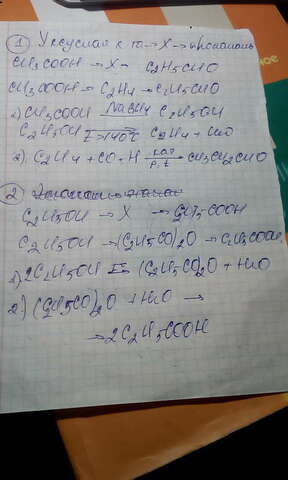 ① Уксусная к-та → X → пропаналь
CH3COOH → X → C2H5CHO
CH3COOH → C2H4 → C2H5CHO
1) CH3COOH NaBH4 C2H5OH
C2H5OH t>140°C C2H4 + H2O
2) C2H4 + CO + H кат p,t CH3CH2CHO
②
C2H5OH → X → C2H5COOH
C2H5OH → (C2H5CO)2O → C2H5COOH
1) 2C2H5OH (C2H5CO)2O + H2O
2) (C2H5CO)2O + H2O →
→ 2C2H5COOH